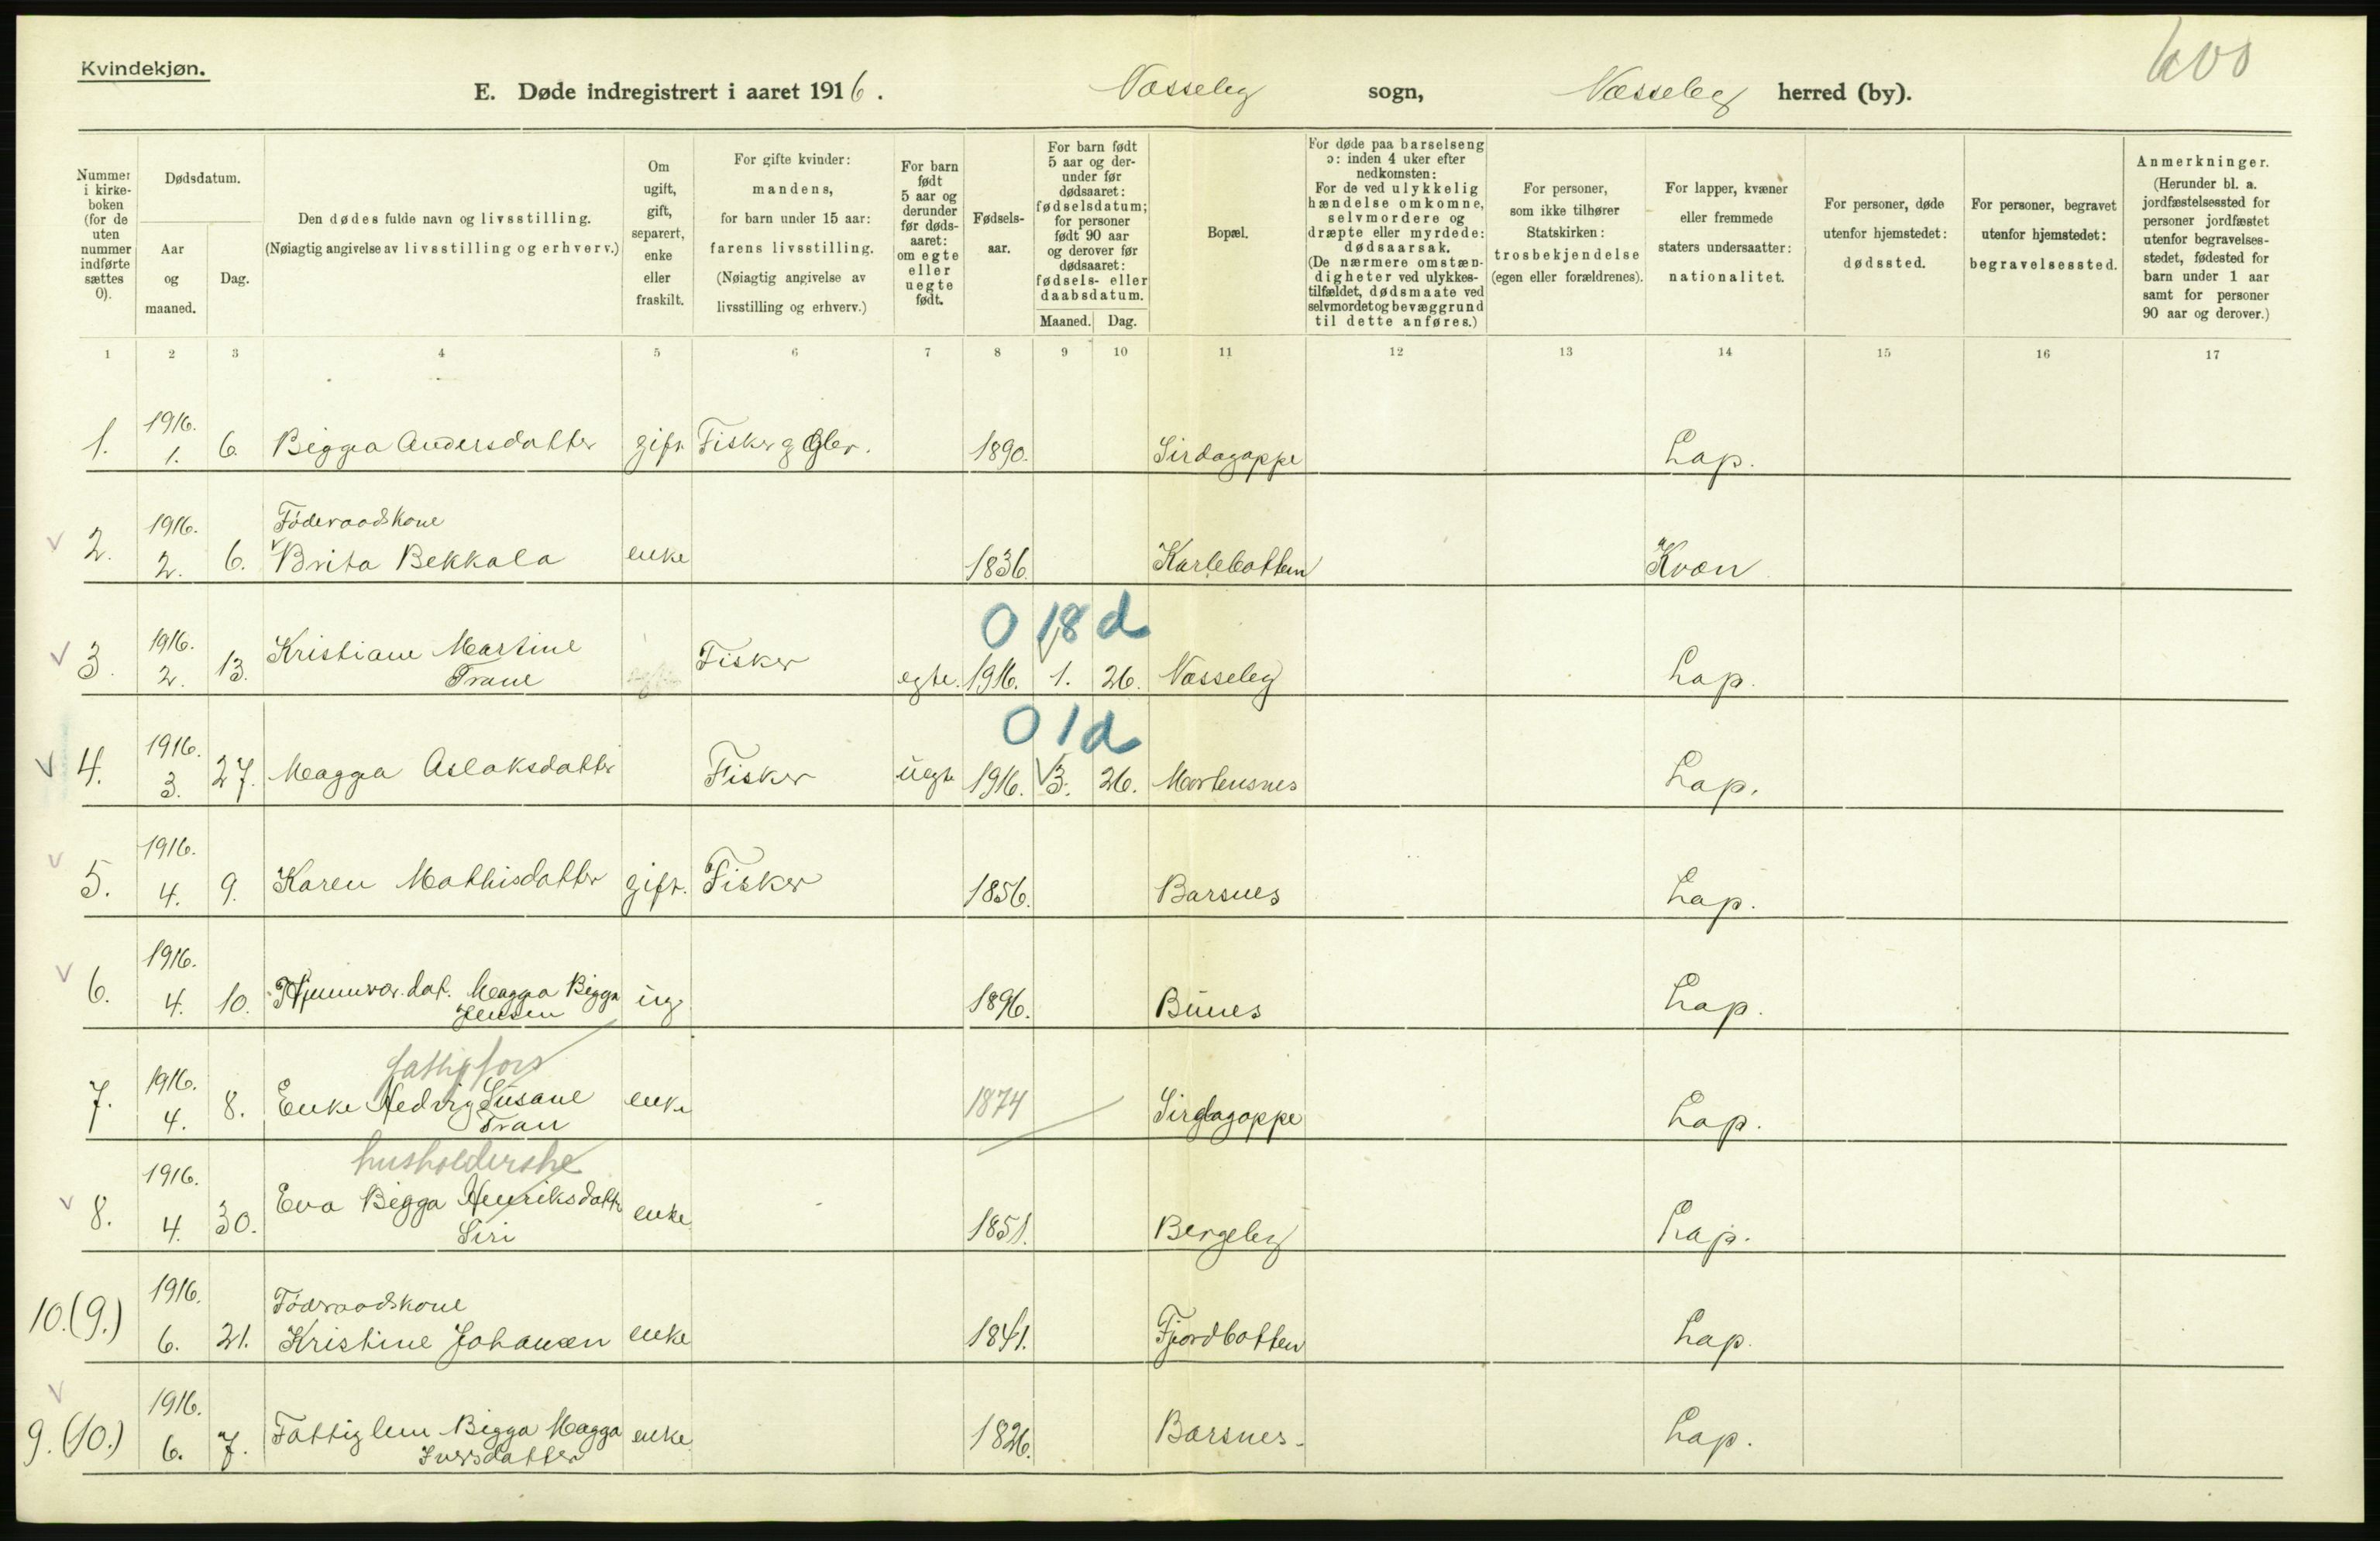 Kvindekjøn.
600
E. Døde indregistrert i aaret 1916. Næsseby sogn, Næsseby herred (by).
Nummer i kirkeboken (for de uten nummer indførte sættes 0).
Dødsdatum.
Aar og maaned.
Dag.
Den dødes fulde navn og livsstilling.
(Nøiagtig angivelse av livsstilling og erhverv.)
Om ugift, gift, separert, enke eller fraskilt.
For gifte kvinder: mandens, for barn under 15 aar: farens livsstilling.
(Nøiagtig angivelse av livsstilling og erhverv.)
For barn født 5 aar og derunder før dødsaaret: om egte eller uegte født.
Fødselsaar.
For barn født 5 aar og derunder før dødsaaret: fødselsdatum; for personer født 90 aar og derover før dødsaaret: fødsels- eller daabsdatum.
Maaned. Dag.
Bopæl.
For døde paa barselseng ɔ: inden 4 uker efter nedkomsten:
For de ved ulykkelig hændelse omkomne, selvmordere og dræpte eller myrdede: dødsaarsak.
(De nærmere omstændigheter ved ulykkestilfældet, dødsmaate ved selvmordet og bevæggrund til dette anføres.)
For personer, som ikke tilhører Statskirken: trosbekjendelse (egen eller forældrenes).
For lapper, kvæner eller fremmede staters undersaatter: nationalitet.
For personer, døde utenfor hjemstedet: dødssted.
For personer, begravet utenfor hjemstedet: begravelsessted.
Anmerkninger.
(Herunder bl. a. jordfæstelsessted for personer jordfæstet utenfor begravelsesstedet, fødested for barn under 1 aar samt for personer 90 aar og derover.)
1 2 3 4 5 6 7 8 9 10 11 12 13 14 15 16 17
1. 1916. 1. 6. Bigga Andersdatter gift Fisker g 1890. Sirdagoppe Lap.
Föderaadskone
2. 1916. 2. 6. Brita Bekkala enke 1836. Karlebotten Kvæn
0 18 d
3. 1916. 2. 13. Kristiane Martine Trane Fisker egte. 1916. 1. 26. Næsseby Lap.
0 1 d
4. 1916. 3. 27. Magga Aslaksdatter Fisker uegt 1916. 3. 26. Mortensnes Lap.
5. 1916. 4. 9. Karen Mathisdatter gift. Fisker 1856. Barsnes Lap.
6. 1916. 4. 10. dat. Magga Bigga Jensen ug. 1896. Bunes Lap.
fattigfors
7. 1916. 4. 8. Enke Hedvig Susane Tran enke 1874 Sirdagoppe Lap.
husholderske
8. 1916. 4. 30. Eva Bigga Henriksdatter Siri enke 1851. Bergeby Lap.
Föderaadskone
10. (9.) 1916. 6. 21. Kristine Johansen enke 1841. Fjordbotten Lap.
9. (10.) 1916. 6. 7. Fattiglem Bigga Magga Iversdatter enke 1826. Barsnes. Lap.